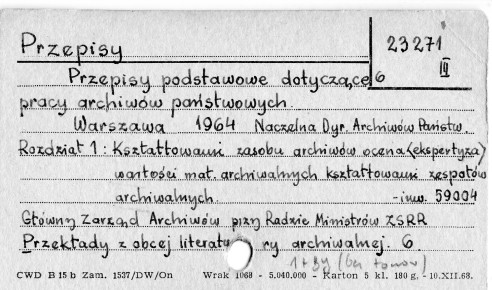 Przepisy
23271
III
Przepisy podstawowe dotyczące 6
pracy archiwów państwowych.
Warszawa 1964 Naczelna Dyr. Archiwów Państw.
Rozdział 1: Kształtowanie zasobu archiwów ocena (ekspertyza)
wartości mat. archiwalnych kształtowanie zespołów
archiwalnych - inw. 59004
Główny Zarząd Archiwów przy Radzie Ministrów ZSRR
Przekłady z obcej literatu ry archiwalnej. 6
CWD B 15 b Zam. 1537/DW/On Wrak 1068 - 5.040.000 - Karton 5 kl. 180 g. - 10.XII.68.